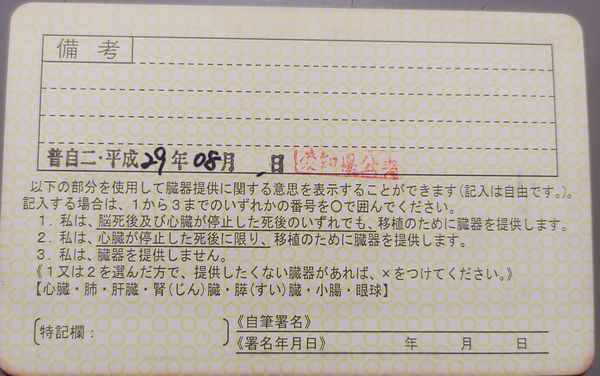 備考
普自二・平成29年08月 日 愛知県公安
以下の部分を使用して臓器提供に関する意思を表示することができます(記入は自由です。)。
記入する場合は、1から3までのいずれかの番号を〇で囲んでください。
1．私は、脳死後及び心臓が停止した死後のいずれでも、移植のために臓器を提供します。
2．私は、心臓が停止した死後に限り、移植のために臓器を提供します。
3．私は、臓器を提供しません。
《1又は2を選んだ方で、提供したくない臓器があれば、×をつけてください。》
【心臓・肺・肝臓・腎(じん)臓・膵(すい)臓・小腸・眼球】
特記欄：
《自筆署名》
《署名年月日》 年 月 日